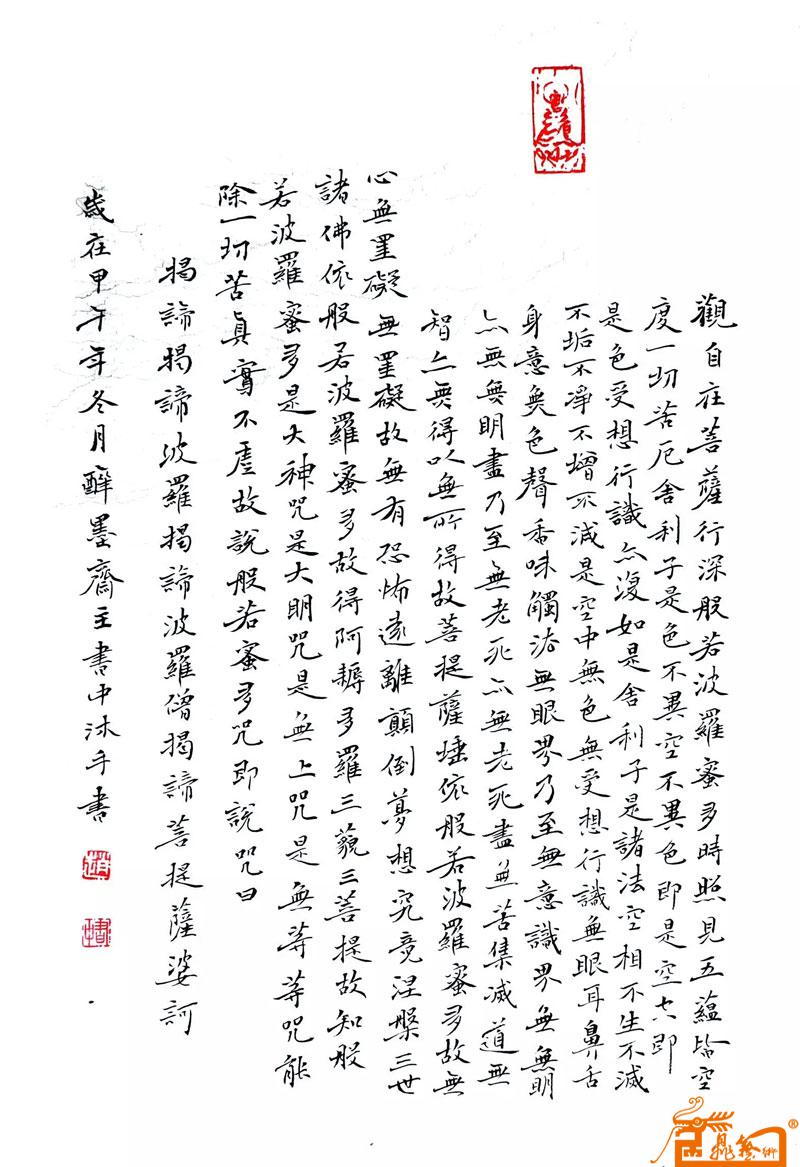 觀自在菩薩行深般若波羅蜜多時照見五蘊皆空
度一切苦厄舍利子是色不異空不異色即是空空即
是色受想行識亦復如是舍利子是諸法空相不生不滅
不垢不淨不增不減是空中無色無受想行識無眼耳鼻舌
身意無色聲香味觸法無眼界乃至無意識界無無明
亦無無明盡乃至無老死亦無老死盡無苦集滅道無
智亦無得以無所得故菩提薩埵依般若波羅蜜多故無
心無罣礙無罣礙故無有恐怖遠離顛倒夢想究竟涅槃三世
諸佛依般若波羅蜜多故得阿耨多羅三藐三菩提故知般
若波羅蜜多是大神咒是大明咒是無上咒是無等等咒能
除一切苦真實不虛故說般若蜜多咒即說咒曰
揭諦揭諦波羅揭諦波羅僧揭諦菩提薩婆訶
歲在甲午年冬月醉墨齋主書中沐手書